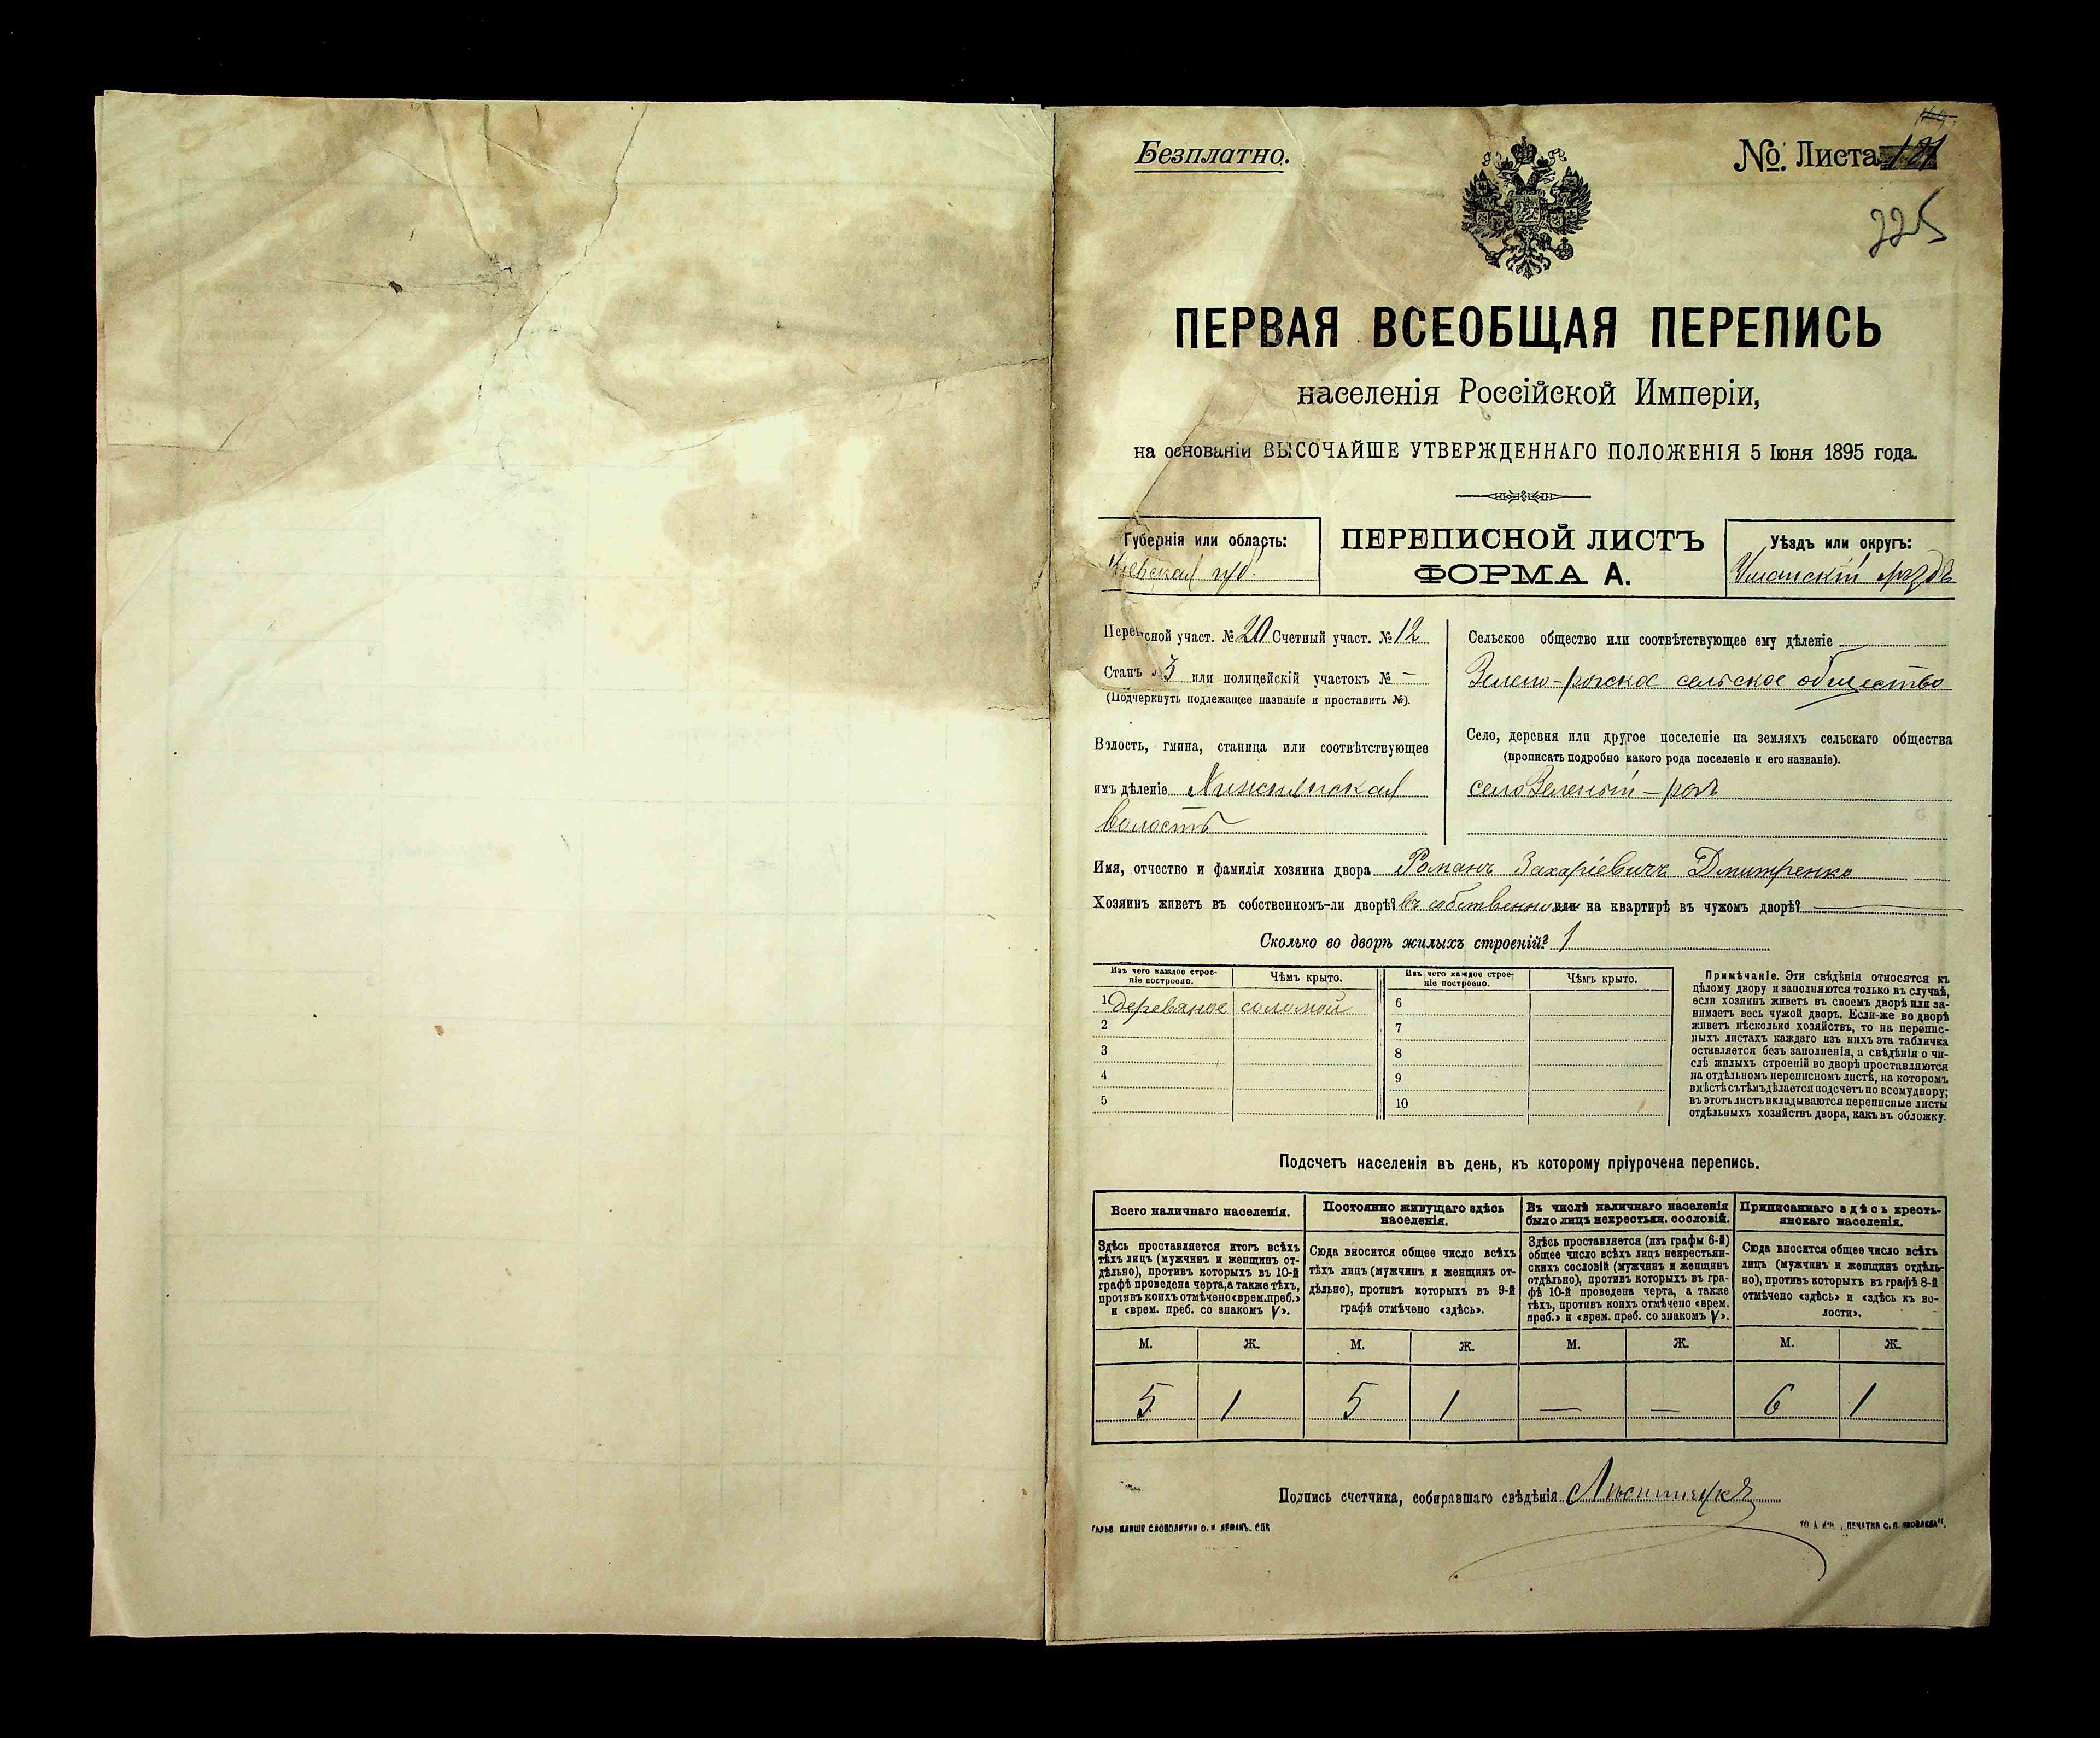 Безплатно.
№ Листа 121
225
ПЕРВАЯ ВСЕОБЩАЯ ПЕРЕПИСЬ
населенія Россійской Имперіи,
на основаніи ВЫСОЧАЙШЕ УТВЕРЖДЕННАГО ПОЛОЖЕНІЯ 5 Іюня 1895 года.
Губернія или область:
Кіевская губ.
ПЕРЕПИСНОЙ ЛИСТЪ
ФОРМА А.
Уѣздъ или округъ:
Уманскій уѣздъ
Переписной участ. № 20 Счетный участ. № 12
Станъ 3 или полицейскій участокъ № —
(Подчеркнуть подлежащее названіе и проставить №).
Волость, гмина, станица или соотвѣтствующее
имъ дѣленіе
волость
Сельское общество или соотвѣтствующее ему дѣленіе
Зелено-рогское сельское общество
Село, деревня или другое поселеніе на земляхъ сельскаго общества
(прописать подробно какого рода поселеніе и его названіе).
село Зеленый-рогъ
Имя, отчество и фамилія хозяина двора Романъ Захаріевичъ Дмитренко
Хозяинъ живетъ въ собственномъ-ли дворѣ? въ собственномъ или на квартирѣ въ чужомъ дворѣ? —
Сколько во дворѣ жилыхъ строеній? 1
Изъ чего каждое строе-
ніе построено.
Чѣмъ крыто.
Изъ чего каждое строе-
ніе построено.
Чѣмъ крыто.
1 деревяное соломой
2
3
4
5
6
7
8
9
10
Примѣчаніе. Эти свѣдѣнія относятся къ
цѣлому двору и заполняются только въ случаѣ,
если хозяинъ живетъ въ своемъ дворѣ или за-
нимаетъ весь чужой дворъ. Если-же во дворѣ
живетъ нѣсколько хозяйствъ, то на перепис-
ныхъ листахъ каждаго изъ нихъ эта табличка
оставляется безъ заполненія, а свѣдѣнія о чи-
слѣ жилыхъ строеній во дворѣ проставляются
на отдѣльномъ переписномъ листѣ, на которомъ
вмѣстѣ съ тѣмъ дѣлается подсчетъ по всему двору;
въ этотъ листъ вкладываются переписные листы
отдѣльныхъ хозяйствъ двора, какъ въ обложку.
Подсчетъ населенія въ день, къ которому пріурочена перепись.
Всего наличнаго населенія.
Здѣсь проставляется итогъ всѣхъ
тѣхъ лицъ (мужчинъ и женщинъ от-
дѣльно), противъ которыхъ въ 10-й
графѣ проведена черта, а также тѣхъ,
противъ коихъ отмѣчено «врем. преб.»
и «врем. преб. со знакомъ V».
Постоянно живущаго здѣсь
населенія.
Сюда вносится общее число всѣхъ
тѣхъ лицъ (мужчинъ и женщинъ от-
дѣльно), противъ которыхъ въ 9-й
графѣ отмѣчено «здѣсь».
Въ числѣ наличнаго населенія
было лицъ некрестьян. сословій.
Здѣсь проставляется (изъ графы 6-й)
общее число всѣхъ лицъ некрестьян-
скихъ сословій (мужчинъ и женщинъ
отдѣльно), противъ которыхъ въ гра-
фѣ 10-й проведена черта, а также
тѣхъ, противъ коихъ отмѣчено «врем.
преб.» и «врем. преб. со знакомъ V».
Приписаннаго здѣсь кресть-
янскаго населенія.
Сюда вносится общее число всѣхъ
лицъ (мужчинъ и женщинъ отдѣль-
но), противъ которыхъ въ графѣ 8-й
отмѣчено «здѣсь» и «здѣсь къ во-
лости».
М. Ж. М. Ж. М. Ж. М. Ж.
5 1 5 1 — — 6 1
Подпись счетчика, собиравшаго свѣдѣнія